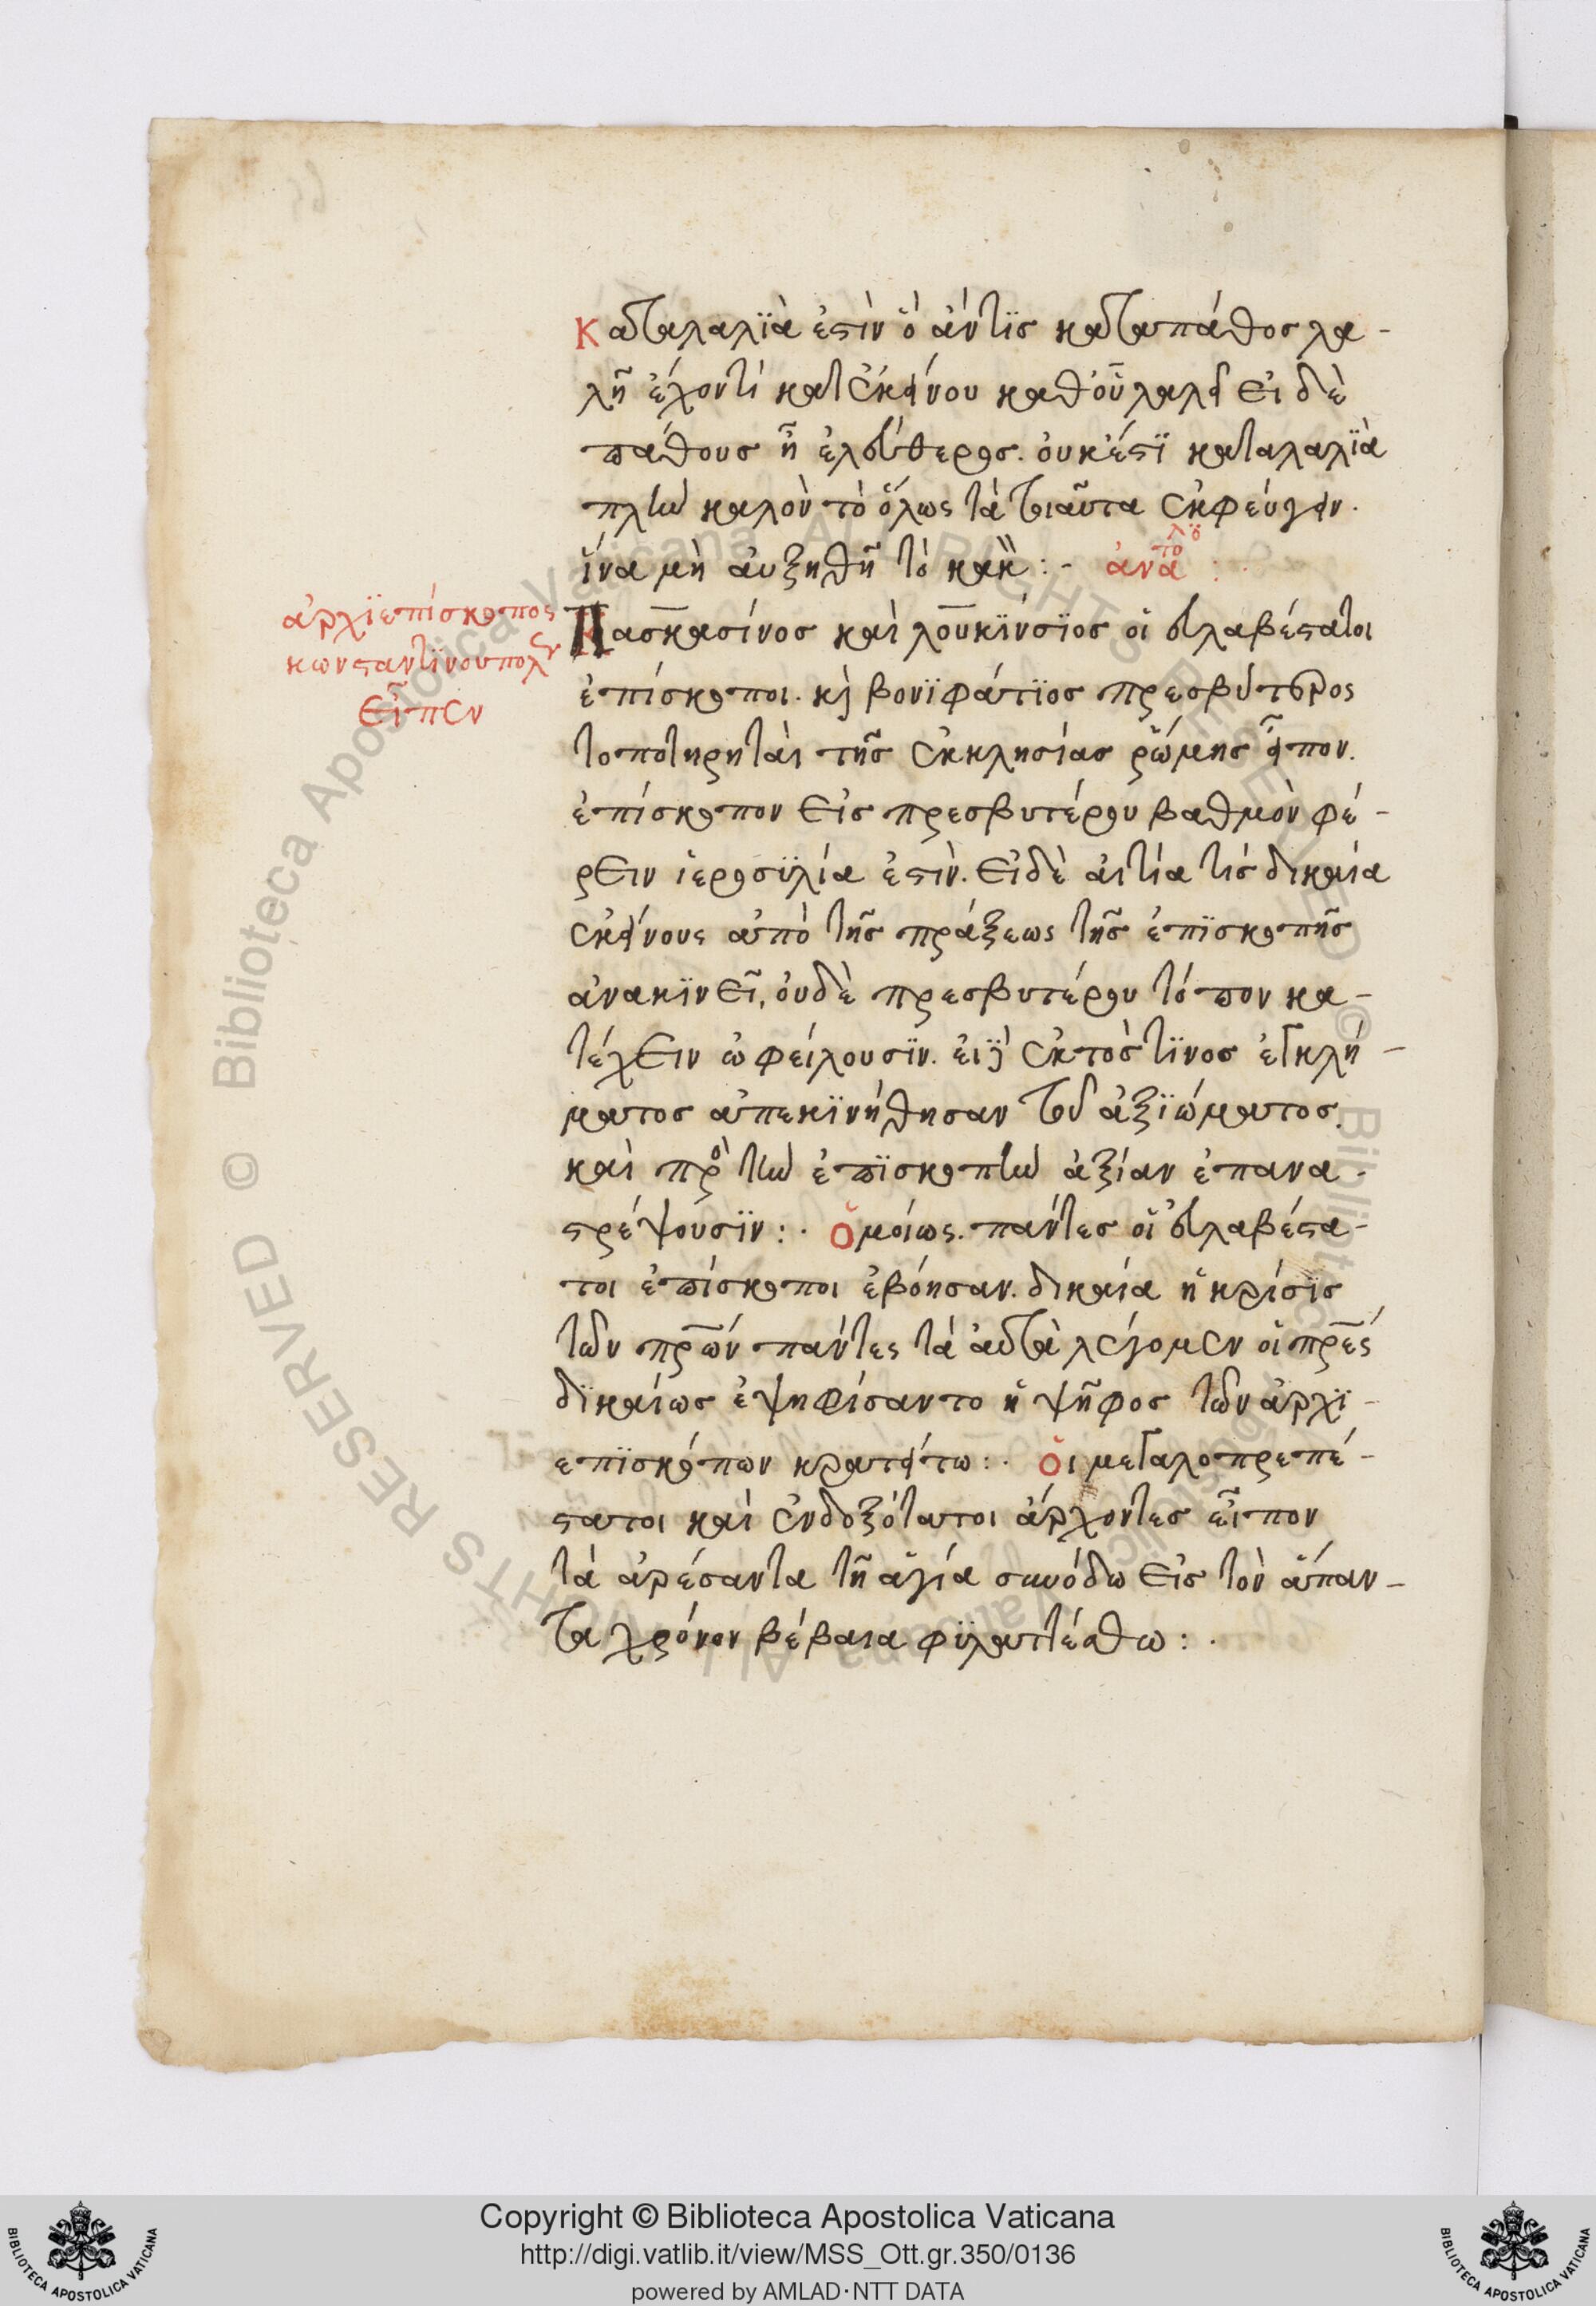 Καταλαλϊὰ ἐστὶν ὃ ἀν τϊς κατα πάθος λα-
λῆ ἔχοντι κατ ἐκείνου καθ οὗ λαλεῖ εἰ δὲ
πάθους ἦ ἐλεύθερος. οὐκ ἔστϊ καταλαλϊὰ
πλὴν καλὸν τὸ ὅλως τὰ τοιαῦτα ἐκφεύγειν.
ἵνα μὴ αὐξηθῆ τὸ κακὸν :-
ἀρχϊεπίσκοπος
κωνσταντϊνουπολ
εἶπεν
Πασκασίνος καὶ λουκϊνσϊος οἱ εὐλαβέστατοι
ἐπίσκοποι. κὶ βονϊφάτϊος πρεσβύτερος
τοποτηρηταὶ τῆς ἐκκλησίας ῥώμης εἶπον.
ἐπίσκοπον εἰς πρεσβυτέρου βαθμὸν φέ-
ρειν ἱεροσϋλία ἐστὶν. εἰ δὲ αἰτία τίς δικαία
ἐκείνους ἀπὸ τῆς πράξεως τῆς ἐπϊσκοπῆς
ἀνακϊνεῖ, οὐδὲ πρεσβυτέρου τόπον κα-
τέχειν ὠφείλουσϊν. εἰ δὲ ἐκτὸς τϊνος ἐγκλή-
ματος ἀπεκϊνήθησαν τοῦ ἀξϊώματος.
καὶ πρὸ τὴν ἐπϊσκοπὴν ἀξίαν ἐπανα-
στρέψουσϊν :· Ὁμοίως. πάντες οἱ εὐλαβέστα-
τοι ἐπίσκοποι ἐβόησαν. δικαία ἡ κρίσϊς
τῶν πρων πάντες τὰ αὐτὰ λέγομεν οἱ πρες
δϊκαίως ἐψηφίσαντο ἡ ψῆφος τῶν ἀρχϊ-
επϊσκόπων κρατείτω :· Οἱ μεγαλοπρεπέ-
στατοι καὶ ἐνδοξότατοι ἄρχοντες εἶπον
τὰ ἀρέσαντα τῆ ἁγία συνόδω εἰς τὸν ἅπαν-
τα χρόνον βέβαια φϋλαττέσθω :·
Copyright © Biblioteca Apostolica Vaticana
http://digi.vatlib.it/view/MSS_Ott.gr.350/0136
powered by AMLAD·NTT DATA